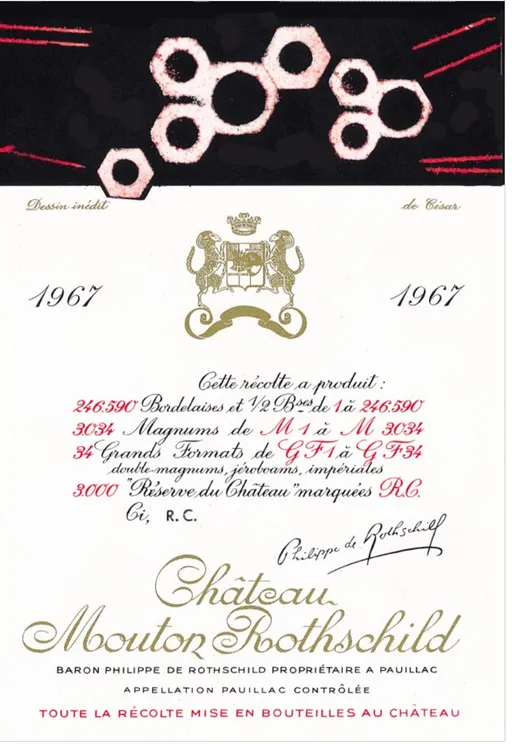 Dessin inédit de César
1967 1967
Cette récolte a produit :
246.590 Bordelaises et 1/2 Bses de 1 à 246.590
3.034 Magnums de M 1 à M 3.034
34 Grands Formats de G F 1 à G F 34
double-magnums, jéroboams, impériales
3.000 "Réserve du Château" marquées R.C.
Ci, R.C.
Philippe de Rothschild
Château
Mouton Rothschild
BARON PHILIPPE DE ROTHSCHILD PROPRIÉTAIRE A PAUILLAC
APPELLATION PAUILLAC CONTRÔLÉE
TOUTE LA RÉCOLTE MISE EN BOUTEILLES AU CHÂTEAU